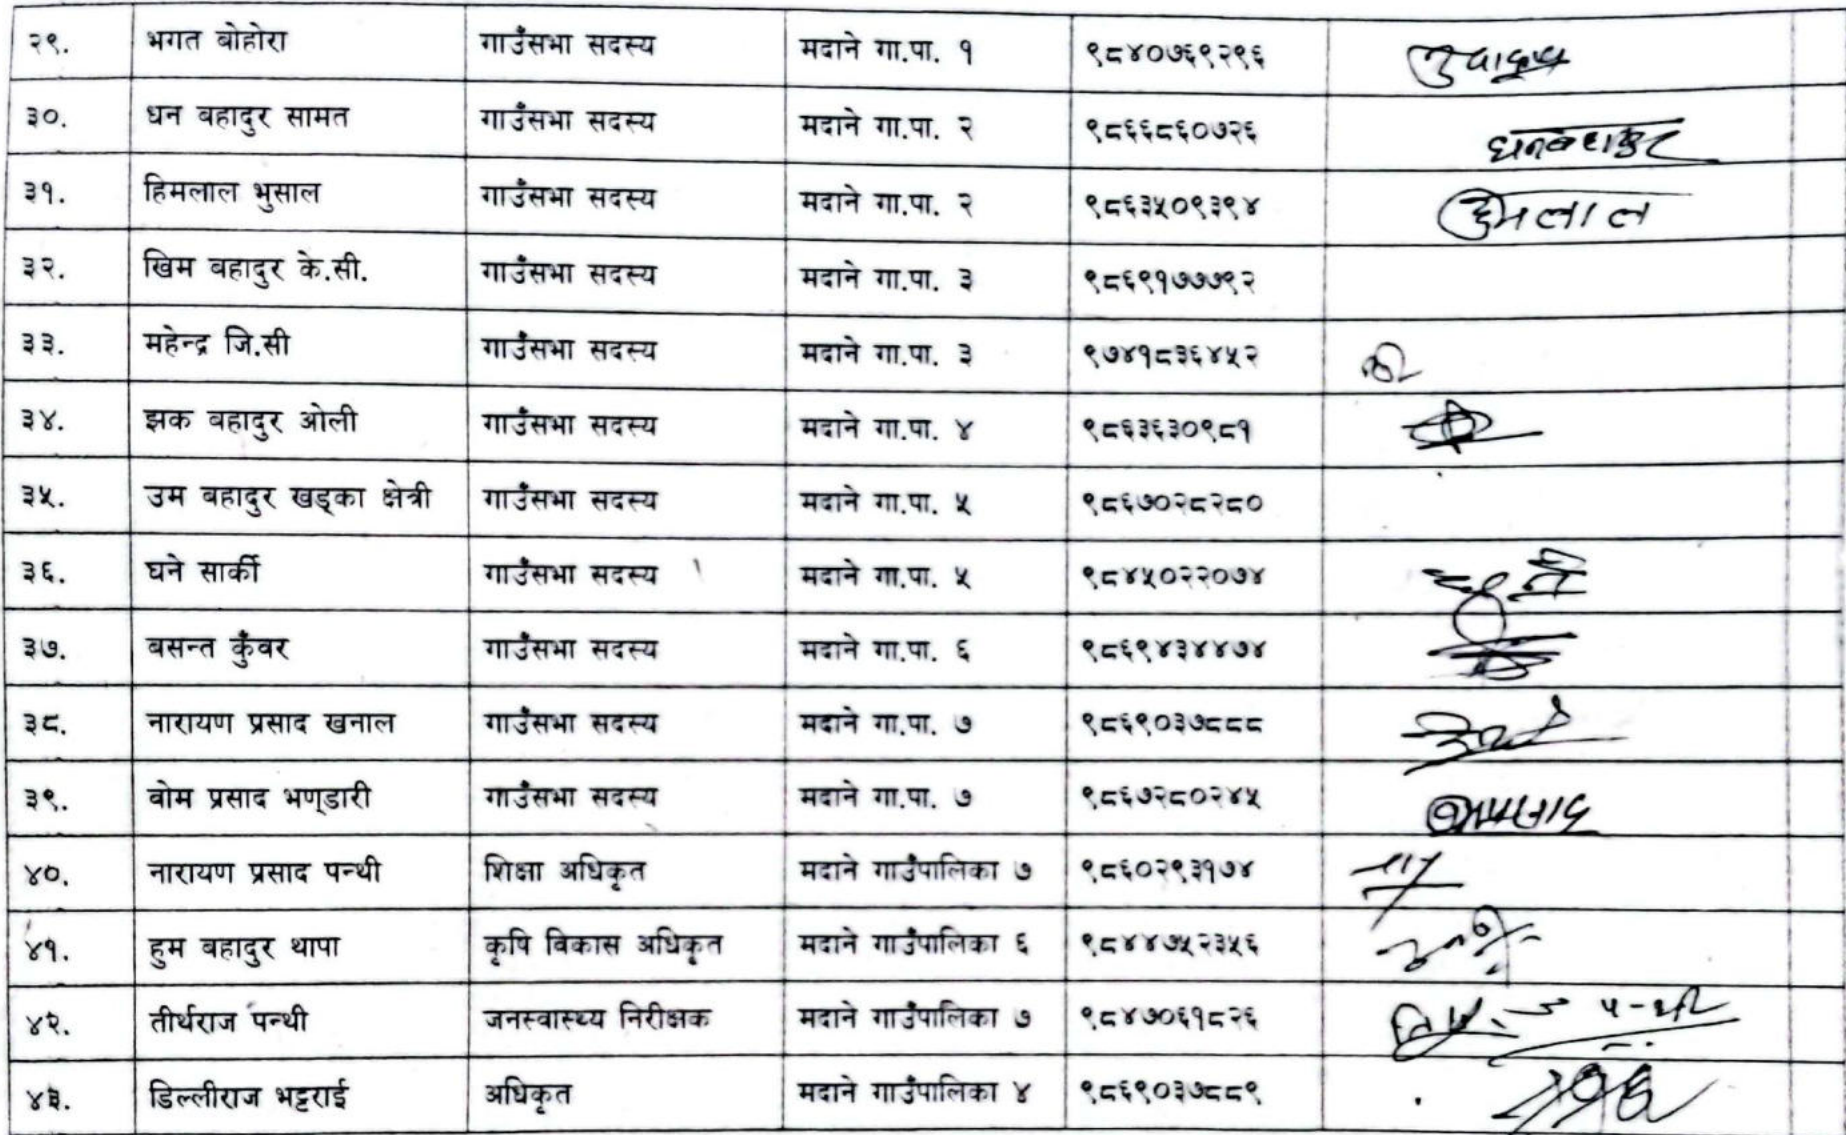 २९. भगत बोहोरा गाउँसभा सदस्य मदाने गा.पा. १ ९८४०७६९२९६
३०. धन बहादुर सामत गाउँसभा सदस्य मदाने गा.पा. २ ९८६६८६०७२६ धनबहादुर
३१. हिमलाल भुसाल गाउँसभा सदस्य मदाने गा.पा. २ ९८६३५०९३९४ हिमलाल
३२. खिम बहादुर के.सी. गाउँसभा सदस्य मदाने गा.पा. ३ ९८६९१७७७९२
३३. महेन्द्र जि.सी गाउँसभा सदस्य मदाने गा.पा. ३ ९७४१८३६४५२
३४. झक बहादुर ओली गाउँसभा सदस्य मदाने गा.पा. ४ ९८६३६३०९८१
३५. उम बहादुर खड्का क्षेत्री गाउँसभा सदस्य मदाने गा.पा. ५ ९८६७०२८२८०
३६. घने सार्की गाउँसभा सदस्य मदाने गा.पा. ५ ९८४५०२२०७४
३७. बसन्त कुँवर गाउँसभा सदस्य मदाने गा.पा. ६ ९८६९४३४४७४
३८. नारायण प्रसाद खनाल गाउँसभा सदस्य मदाने गा.पा. ७ ९८६९०३७८८८
३९. वोम प्रसाद भण्डारी गाउँसभा सदस्य मदाने गा.पा. ७ ९८६७२८०२४५
४०. नारायण प्रसाद पन्थी शिक्षा अधिकृत मदाने गाउँपालिका ७ ९८६०२९३१७४
४१. हुम बहादुर थापा कृषि विकास अधिकृत मदाने गाउँपालिका ६ ९८४४७५२३५६
४२. तीर्थराज पन्थी जनस्वास्थ्य निरीक्षक मदाने गाउँपालिका ७ ९८४७०६१८२६
४३. डिल्लीराज भट्टराई अधिकृत मदाने गाउँपालिका ४ ९८६९०३७८८९